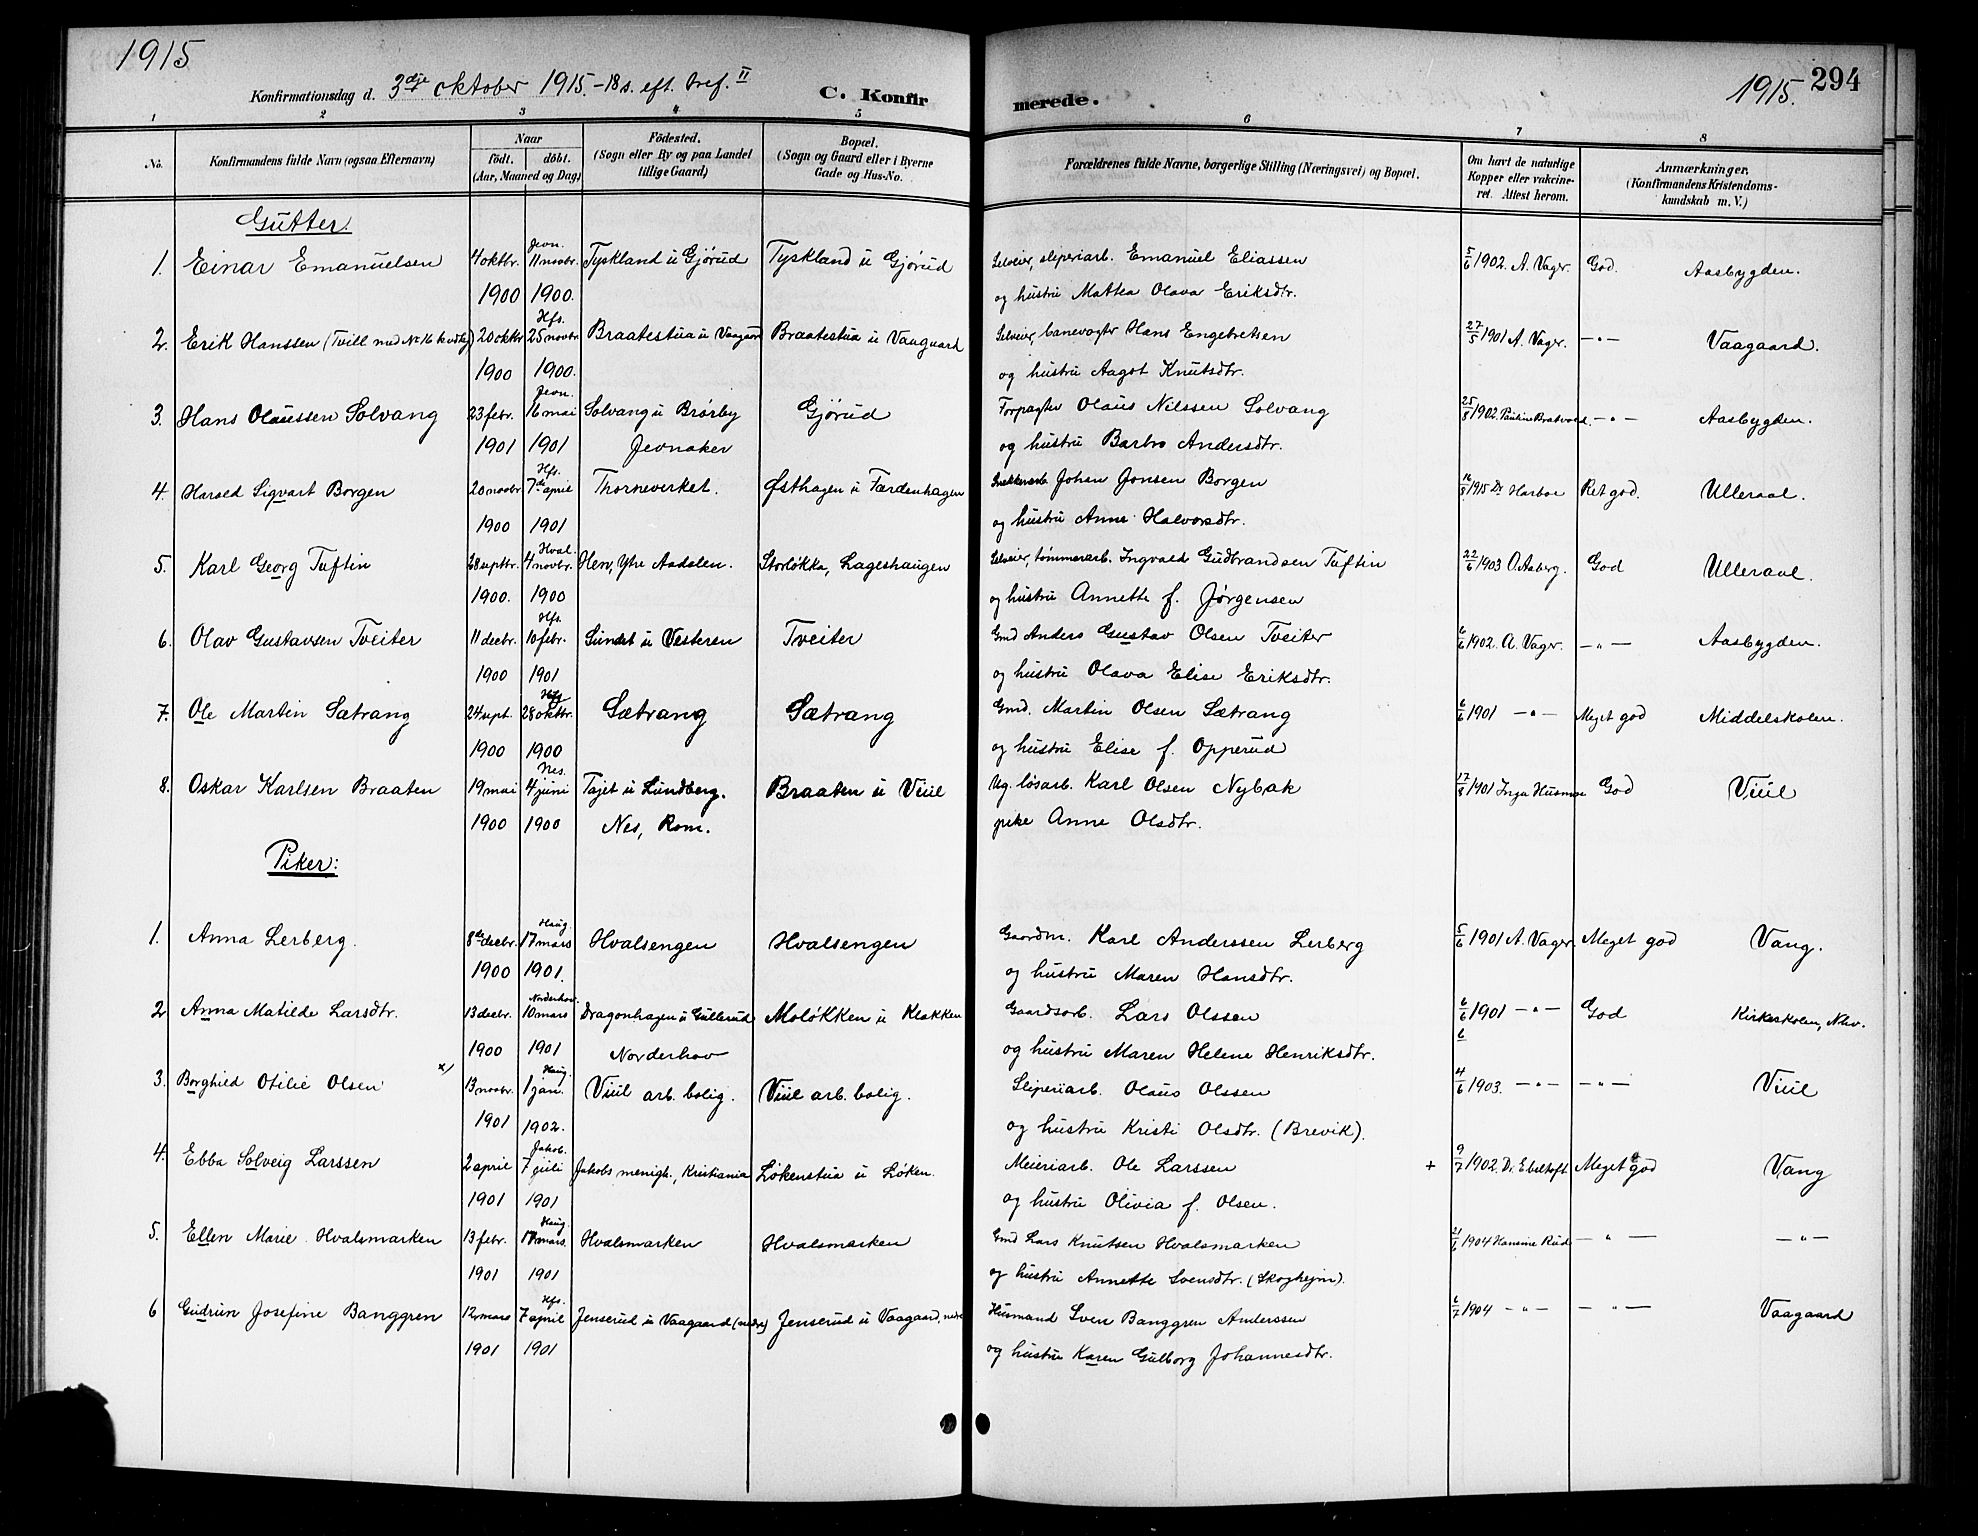 1915
Konfirmationsdag d. 3dje oktober 1915. - 18 s. eft. tref. II C. Konfirmerede. 1915. 294
1 2 3 4 5 6 7 8
No. Konfirmandens fulde Navn (ogsaa Efternavn) Naar födt. döbt. (Aar, Maaned og Dag) Födested. (Sogn eller By og paa Landet tillige Gaard) Bopæl. (Sogn og Gaard eller i Byerne Gade og Hus-No. Forældrenes fulde Navne, borgerlige Stilling (Næringsvei) og Bopæl. Om havt de naturlige Kopper eller vakcineret. Attest herom. Anmærkninger. (Konfirmandens Kristendomskundskab m. V.)
Gutter.
Jevn.
1. Einar Emanuelsen 4 oktbr. 11 novbr. Tyskland u Gjørud Tyskland u Gjørud Selveier, sliperiarb. Emanuel Eliassen 5/6 1902. A. Vager. God. Aasbygden.
1900 1900. og hustru Mattea Olava Eriksdtr.
Hfs.
2. Erik Hanssen (Tvill med No 16 kvdkj) 20 oktbr 25 novbr. Braatestua u Vaagaard Braatestua u Vaagaard Selveier, banevogter Hans Engebretsen 27/5 1901 A. Vager. — " — Vaagaard.
1900 1900. og hustru Aagot Knutsdtr.
Jevn.
3. Hans Olaussen Solvang 23 febr. 16 mai Solvang u Brørby Gjørud Forpagter Olaus Nilssen Solvang 25/8 1902. Pauline Bratvold. — " — Aasbygden.
1901 1901 Jevnaker og hustru Barbro Andersdtr.
Hfs.
4. Harald Sigvart Borgen 20 novbr 7de april Thorneverket. Østhagen u Færdenhagen Snekkerarb. Johan Jonsen Borgen 16/9 1915 Dr Harboe Ret god. Ulleraal.
1900 1901 og hustru Anne Halvorsdtr.
Hval.
5. Karl Georg Tuftin 28 septbr. 4 novbr. Hen, Ytre Aadalen. Storløkka, Lageshaugen Selveier, tømmerarb. Ingvald Gudbrandsen Tuftin 22/6 1903 O. Aaberg. God Ulleraal.
1900. 1900 og hustru Annette f. Jørgensen
Hfs.
6. Olav Gustavsen Tveiter 11 decbr. 10 febr. Sundet u Vesteren Tveiter Gmd Anders Gustav Olsen Tveiter 6/6 1902. A. Vager. — " — Aasbygden.
1900 1901 og hustru Olava Elise Eriksdtr.
Hfs
7. Ole Martin Sætrang 24 sept. 28 oktbr. Sætrang Sætrang Gmd. Martin Olsen Sætrang 6/6 1901 — " — Meget god Middelskolen.
1900 1900 og hustru Elise f. Opperud
Nes.
8. Oskar Karlsen Braaten 19 mai 4 juni Tajet u Lundberg. Braaten u Viul Ug. løsarb. Karl Olsen Nybak 17/8 1901 Inga Husmoe God Viul
1900 1900 Nes, Rom. pike Anne Olsdtr.
Piker:
Haug.
1. Anna Lerberg. 8de decbr. 17 mars Hvalsengen Hvalsengen Gaardm. Karl Anderssen Lerberg 5/6 1901 A. Vager. Meget god Vang.
1900 1901. og hustru Maren Hansdtr.
Norderhov.
2 Anna Matilde Larsdtr. 13 decbr. 10 mars Dragonhagen u Gullerud Moløkken u Klækken Gaardsarb. Lars Olssen 6/6 1901 — " — God Kirkeskolen, Nhv.
1900 1901 Norderhov og hustru Maren Helene Henriksdtr. 6
Haug.
3. Borghild Otilie Olsen x) 13 novbr. 1 jan. Viul arb. bolig. Viul arb. bolig. Sliperiarb. Olaus Olssen 4/6 1903. — " — — " — Viul
1901 1902. og hustru Kristi Olsdtr. (Brevik).
Jakob.
4. Ebba Solveig Larssen 2 april 7 juli Jakobs menigh., Kristiania Løkenstua u Løken. Meieriarb. Ole Larssen + 9/7 1902. Dr. Ebeltoft. Meget god Vang
1901 1901 og hustru Olivia f. Olsen.
Haug.
5. Ellen Marie Hvalsmarken 13 febr. 17 mars. Hvalsmarken Hvalsmarken Gmd Lars Knutsen Hvalsmarken 21/6 1904 Hansine Rud — " — — " —
1901 1901 og hustru Annette Svensdtr. (Skoghejm).
Hfs.
6 Gudrun Josefine Banggren 12 mars 7 april Jenserud u Vaagaard (nedre) Jenserud u Vaagaard, nedre Husmand Sven Banggren Anderssen 6/7 1904 — " — — " — Vaagaard
1901 1901 og hustru Karen Gulborg Johannesdtr.